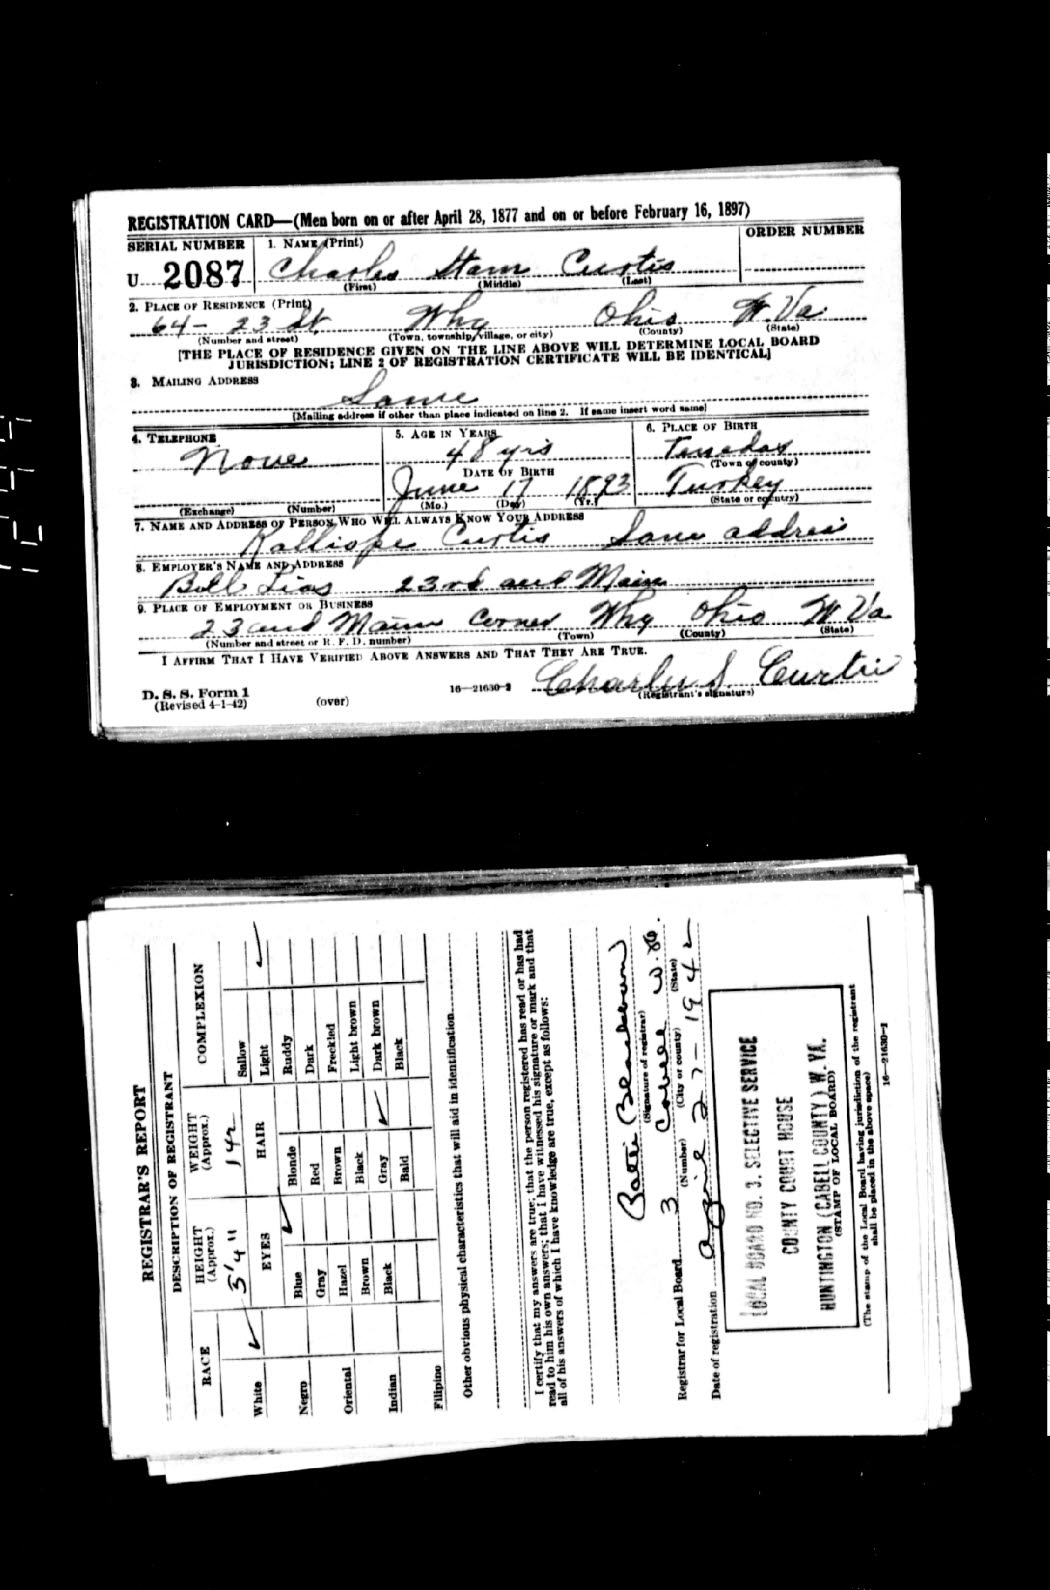 REGISTRATION CARD—(Men born on or after April 28, 1877 and on or before February 16, 1897)
SERIAL NUMBER
1. NAME (Print)
ORDER NUMBER
U 2087
Charles Stam Curtis
(First) (Middle) (Last)
2. PLACE OF RESIDENCE (Print)
64- 23 St Whg Ohio W. Va
(Number and street) (Town, township, village, or city) (County) (State)
[THE PLACE OF RESIDENCE GIVEN ON THE LINE ABOVE WILL DETERMINE LOCAL BOARD
JURISDICTION; LINE 2 OF REGISTRATION CERTIFICATE WILL BE IDENTICAL]
3. MAILING ADDRESS
Same
[Mailing address if other than place indicated on line 2. If same insert word same]
4. TELEPHONE
None
(Exchange) (Number)
5. AGE IN YEARS
48 yrs
DATE OF BIRTH
June 17 1893
(Mo.) (Day) (Yr.)
6. PLACE OF BIRTH
Tenedos
(Town or county)
Turkey
(State or country)
7. NAME AND ADDRESS OF PERSON WHO WILL ALWAYS KNOW YOUR ADDRESS
Kalliope Curtis Same address
8. EMPLOYER'S NAME AND ADDRESS
Bill Lias 23rd and Main
9. PLACE OF EMPLOYMENT OR BUSINESS
23 and Main Corner Whg Ohio W Va
(Number and street or R. F. D. number) (Town) (County) (State)
I AFFIRM THAT I HAVE VERIFIED ABOVE ANSWERS AND THAT THEY ARE TRUE.
D. S. S. Form 1
(Revised 4-1-42)
(over)
16—21630-2
Charles S. Curtis
(Registrant's signature)
REGISTRAR'S REPORT
DESCRIPTION OF REGISTRANT
RACE
HEIGHT
(Approx.)
WEIGHT
(Approx.)
COMPLEXION
5'4"
142
White
Negro
Oriental
Indian
Filipino
EYES
Blue
Gray
Hazel
Brown
Black
HAIR
Blonde
Red
Brown
Black
Gray
Bald
Sallow
Light
Ruddy
Dark
Freckled
Light brown
Dark brown
Black
Other obvious physical characteristics that will aid in identification
I certify that my answers are true; that the person registered has read or has had
read to him his own answers; that I have witnessed his signature or mark and that
all of his answers of which I have knowledge are true, except as follows:
(Signature of registrar)
Registrar for Local Board 3 Cabell W. Va.
(Number) (City or county) (State)
Date of registration April 27- 1942
LOCAL BOARD NO. 3. SELECTIVE SERVICE
COUNTY COURT HOUSE
HUNTINGTON (CABELL COUNTY) W. VA.
(STAMP OF LOCAL BOARD)
(The stamp of the Local Board having jurisdiction of the registrant
shall be placed in the above space)
16—21630-2